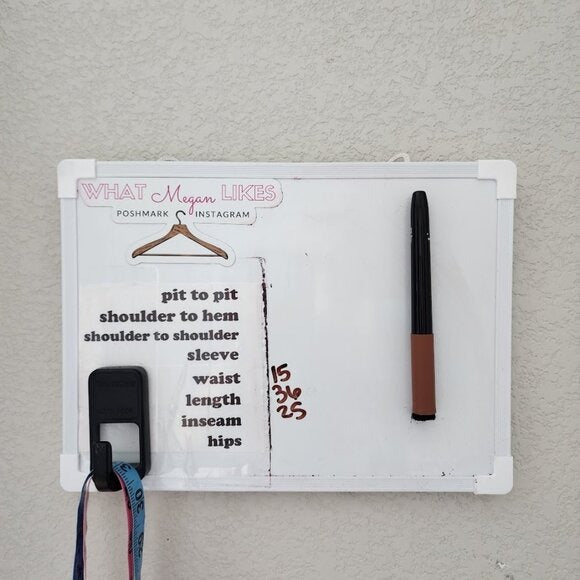 WHAT Megan LIKES
POSHMARK INSTAGRAM
pit to pit
shoulder to hem
shoulder to shoulder
sleeve
waist 15
length 36
inseam 25
hips